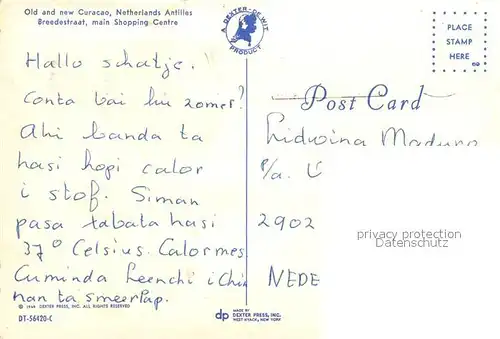 Old and new Curacao, Netherlands Antilles
Breedestraat, main Shopping Centre
A DEXTER-DE WIT
PRODUCT
PLACE
STAMP
HERE
Post Card
Hallo schatje!
Conta bai ku zomer?
Ahi banda ta
hasi hopi calor
i stof. Siman
pasa tabata hasi
37° Celsius. Calor mes
Cuminda Leenchi i Chin
nan ta smeerlap.
Lidwina Maduro
P/a.
2902
NEDE
privacy protection
Datenschutz
DEXTER PRESS, INC. ALL RIGHTS RESERVED
DT-56420-C
dp
MADE BY
DEXTER PRESS, INC.
WEST NYACK, NEW YORK